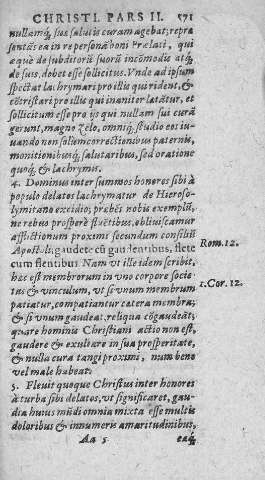 CHRISTI. PARS II. 571
nullamq́, suæ salutis curam agebat; repræ
sentãs ea in re personã boni Prælati, qui
æque de subditorũ suorũ incõmodis atq́
de suis, dobet esse sollicitus. Vnde ad ipsum
spectat lachrymari pro illis qui rident, &
cõtristari pro illis qui inaniter lætãtur, et
sollicitum esse pro ijs qui nullam sui curã
gerunt, magno zelo, omniq́, studio eos iu-
uando non solùm correctionibus paternis,
monitionibusq́, salutaribus, sed oratione
quoq́, & lachrymis.
4. Dominus inter summos honores sibi à
populo delatos lachrymatur de Hieroso-
lymitano excidio, præbẽs nobis exemplũ,
ne rebus prosperè fluẽtibus, obliuiscamur
afflictionum proximi secundum consiliũ
Apostoli, gaudete cũ gaudentibus, flete Rom. 12.
cum flentibus. Nam vt ille idem scribit,
hæc est membrorum in vno corpore socie- 1. Cor. 12.
tas & vinculum, vt si vnum membrum
patiatur, compatiantur cætera membra;
& si vnum gaudeat, reliqua cõgaudeãt;
quare hominis Christiani actio non est,
gaudere & exultare in sua prosperitate,
& nulla cura tangi proximi, num bene
vel male habeat.
5. Fleuit quoque Christus inter honores
à turba sibi delatos, vt significaret, gau-
dia huius mũdi omnia mixta esse multis
doloribus & innumeris amaritudinibus,
Aa 5 eaq́;